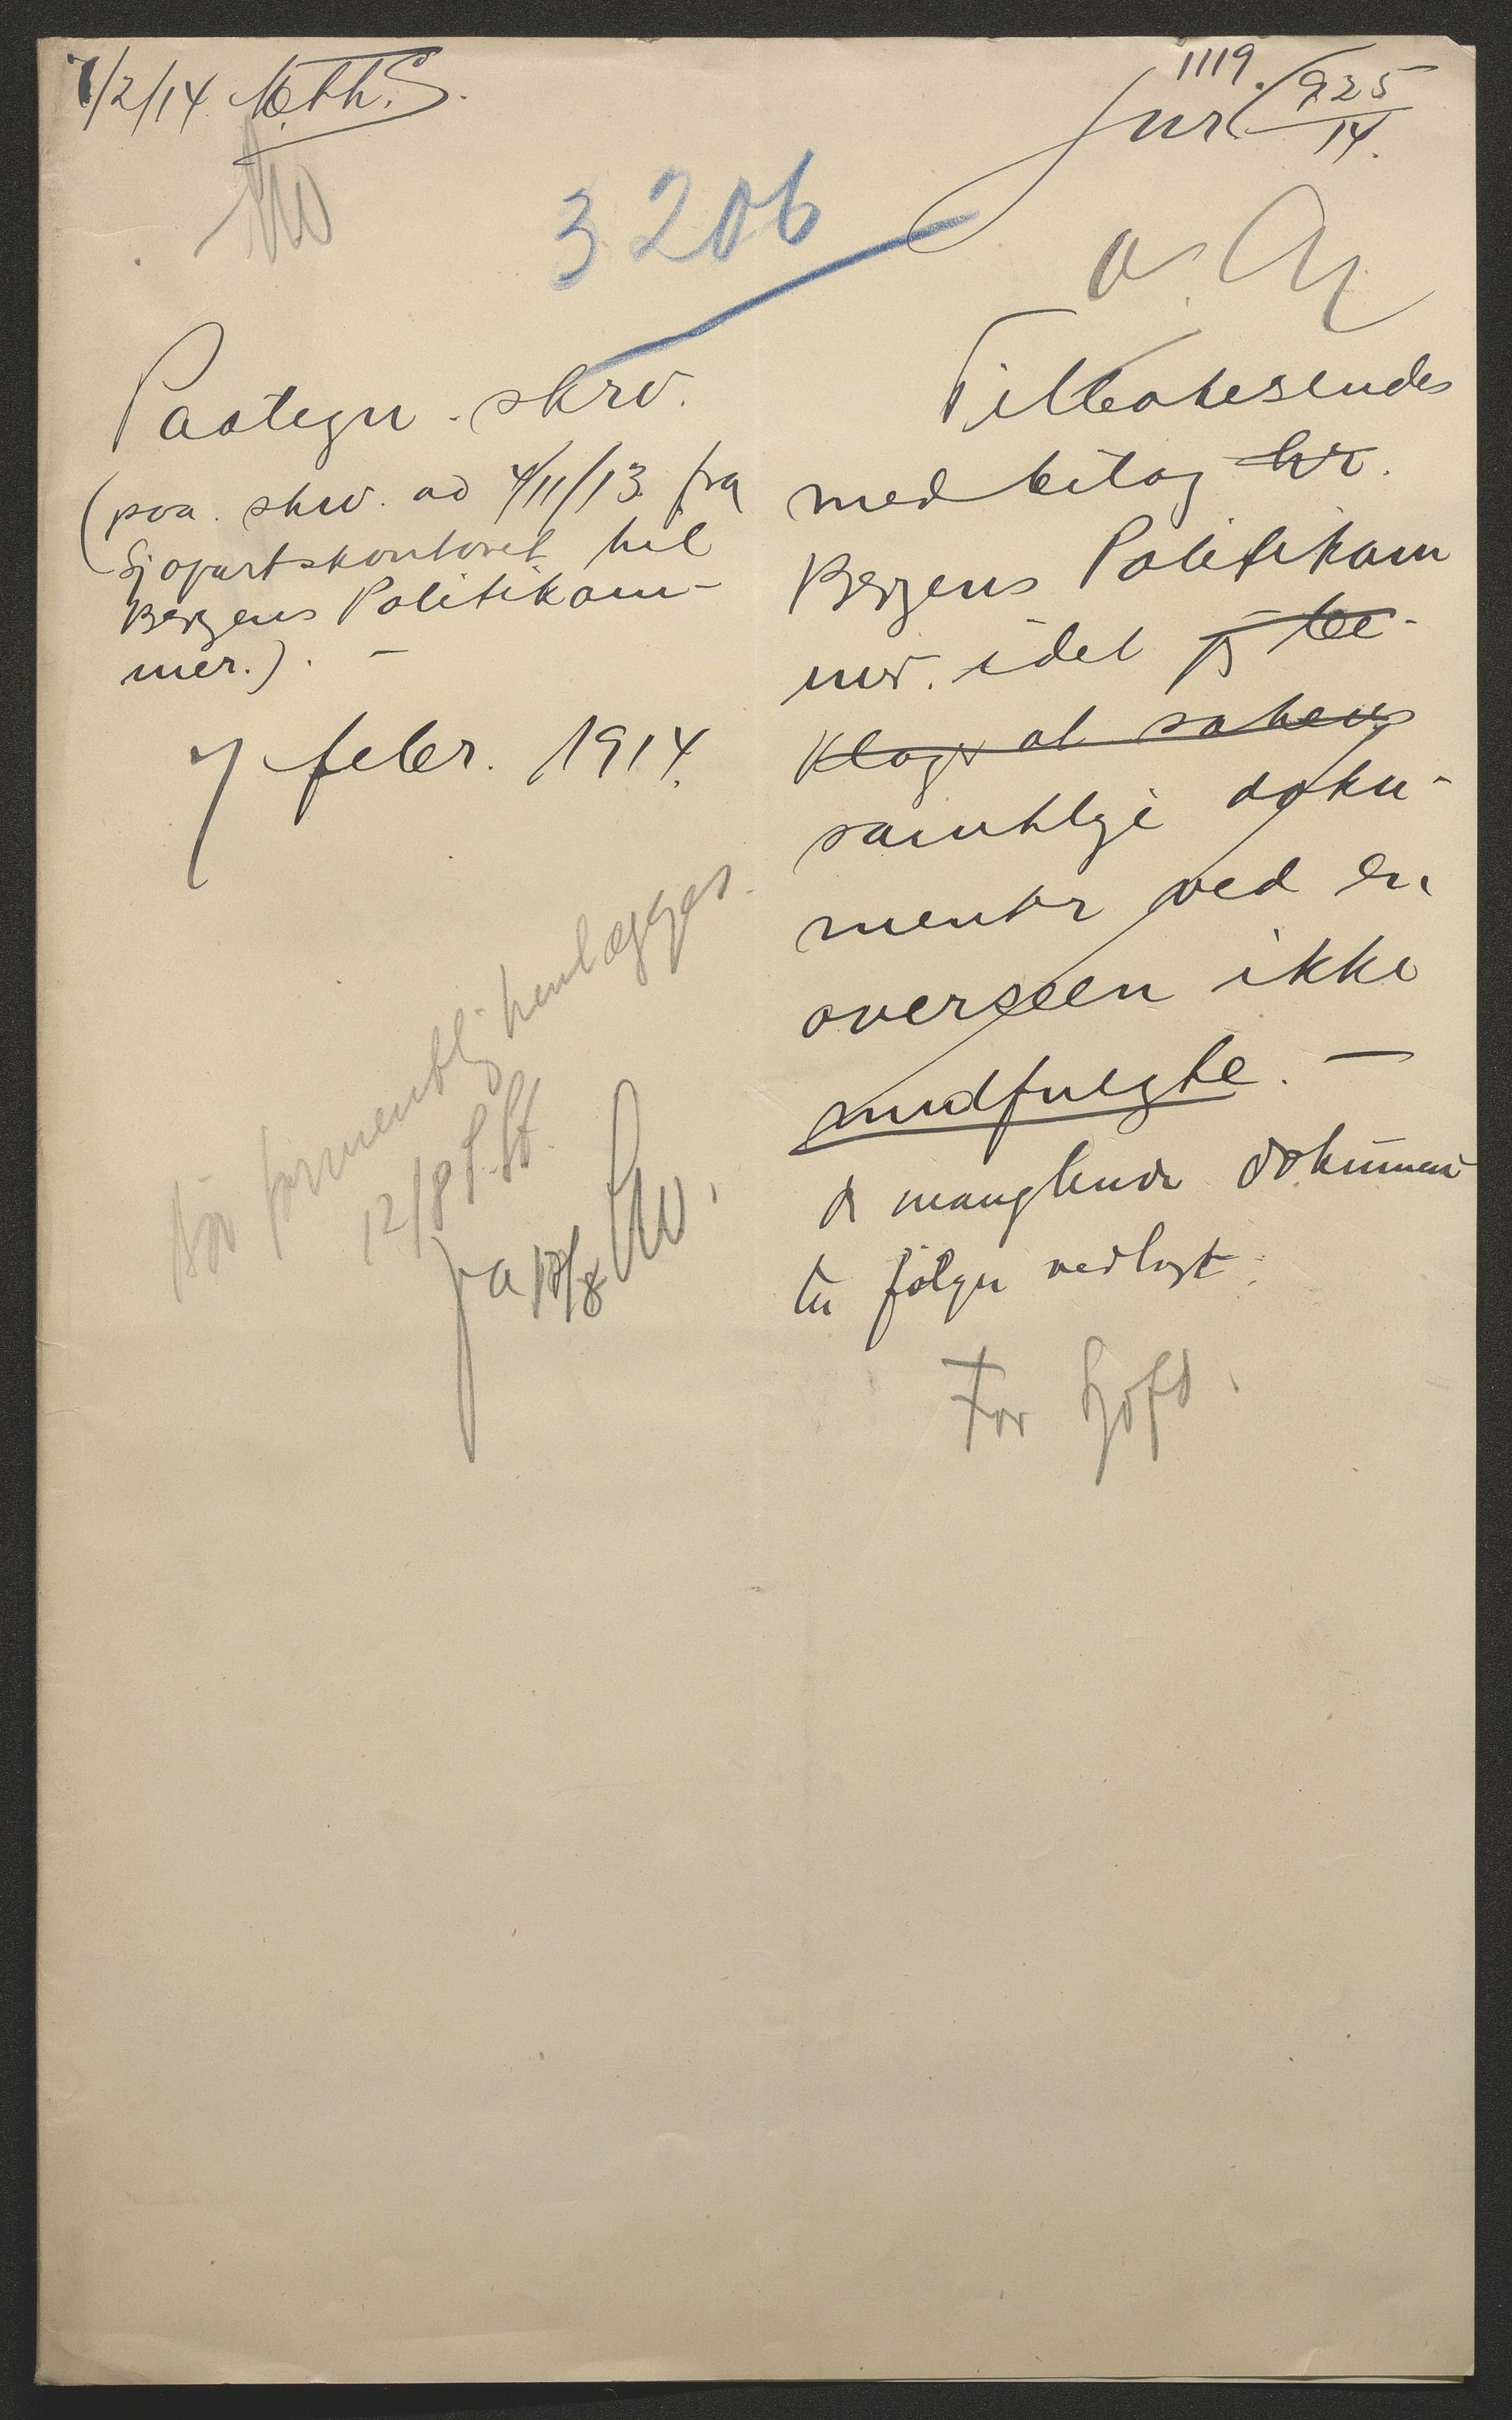 7/2/14
1119.
Jnr. 925
14.
3206
Paategn. skrv.
(paa skrv. ad 4/11/13 fra
Sjøfartskontoret til
Bergens Politikam-
mer.). -
7 febr. 1914.
Tilbakesendes
med bilag hr.
Bergens Politikam
mer. idet jeg be-
klager at sakens
samtlige doku-
menter ved en
overseen ikke
medfulgte. -
De manglende dokumen
ter følger vedlagt.
For Sjøfd.
bør formentlig henlægges.
12/8
Ja 12/8